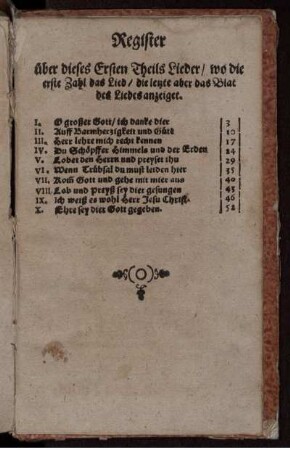 Register
über dieses Ersten Theils Lieder / wo die
erste Zahl das Lied / die letzte aber das Blat
des Liedes anzeiget.
I. O großer Gott / ich danke dier 3
II. Auff Barmherzigkeit und Gütt 10
III. Herr lehre mich recht kennen 17
IV. Du Schöpffer Himmels und der Erden 24
V. Lobet den Herrn und preyset ihn 29
VI. Wenn Trübsal du must leiden hier 35
VII. Kom Gott und gehe mit mier aus 40
VIII. Lob und Preyß sey dier gesungen 43
IX. Ich weiß es wohl Herr Jesu Christ. 46
X. Ehre sey dier Gott gegeben. 52